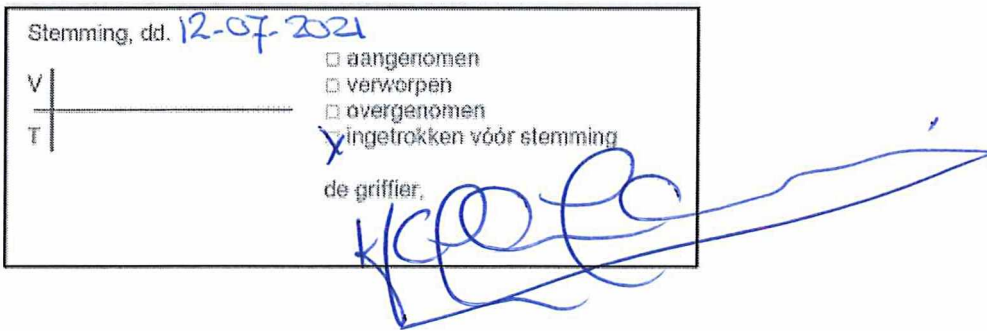 Stemming, dd. 12-07-2021
□ aangenomen
V □ verworpen
□ overgenomen
T X ingetrokken vóór stemming
de griffier,